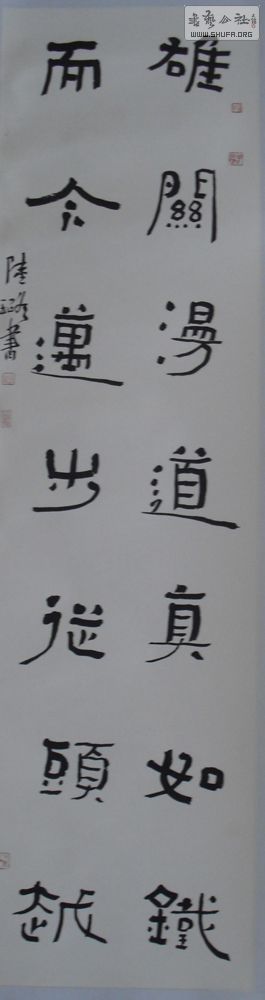 雄關漫道真如鐵
而今邁步從頭越
書
書藝公社
WWW.SHUFA.ORG